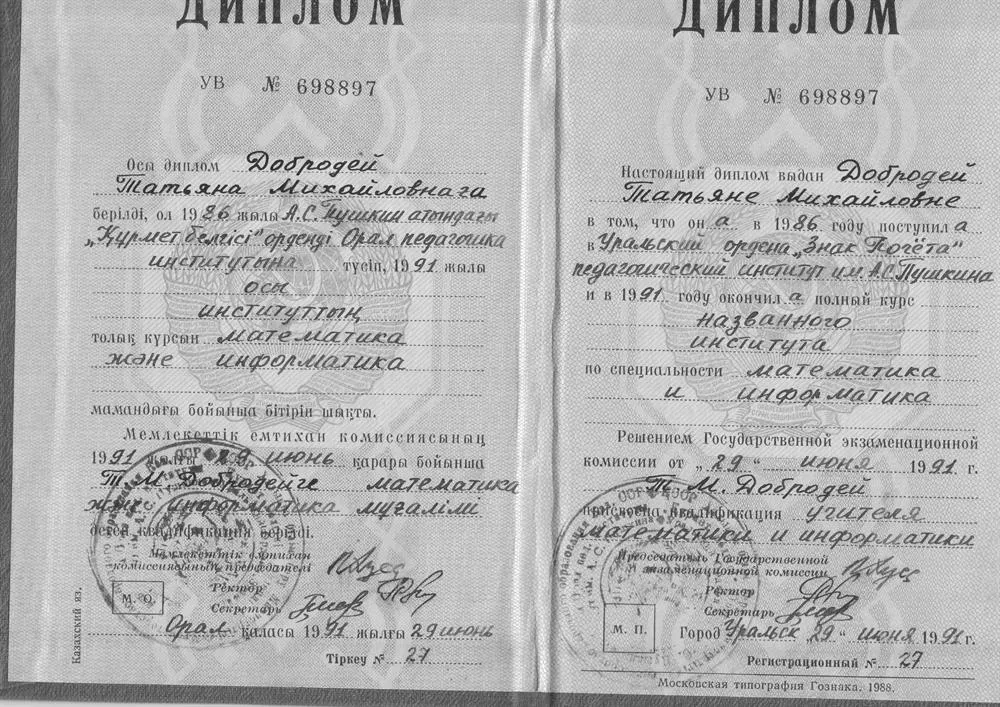 ДИПЛОМ
УВ № 698897
Осы диплом Добродей
Татьяна Михайловнаға
берілді, ол 1986 жылы А.С. Пушкин атындағы
„Құрмет белгісі" орденді Орал педагогика
институтына түсіп, 1991 жылы
осы
институттың
толық курсын математика
және информатика
мамандығы бойынша бітіріп шықты.
Мемлекеттік емтихан комиссиясының
1991 жылғы 29 июнь қарары бойынша
Т. М. Добродейге математика
және информатика мұғалімі
деген квалификация берілді.
Мемлекеттік емтихан
комиссиясының председателі
Ректор
Секретарь
М. О.
Орал қаласы 1991 жылғы 29 июнь
Тіркеу № 27
Казахский яз.
ДИПЛОМ
УВ № 698897
Настоящий диплом выдан Добродей
Татьяне Михайловне
в том, что он а в 1986 году поступил а
в Уральский ордена „Знак Почёта"
педагогический институт им. А.С. Пушкина
и в 1991 году окончил а полный курс
названного
института
по специальности математика
и информатика
Решением Государственной экзаменационной
комиссии от „29" июня 1991 г.
Т. М. Добродей
присвоена квалификация учителя
математики и информатики
Председатель Государственной
экзаменационной комиссии
Ректор
Секретарь
М. П.
Город Уральск „29" июня 1991 г.
Регистрационный № 27
Московская типография Гознака. 1988.